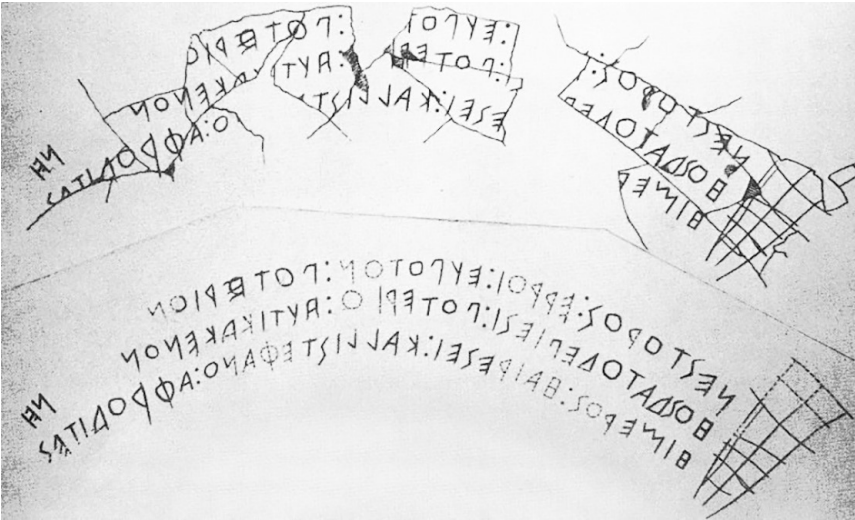 ΝΕΣΤΟΡΟΣ: ΕΥΠΟΤ :ΠΟΤΕΡΙΟ
ΗΟΣΔΑΤΟΔΕ Ι:ΠΟΤΕΡ :ΑΥΤ ΑΚΕΝΟΝ
ΗΙΜΕΡ ΕΣΕΙ:ΚΑΛΛΙΣΤ Ο:ΑΦΡΟΔΙΤΕΣ
ΗΝ
ΝΕΣΤΟΡΟΣ:ΕΡΡΟΙ:ΕΥΠΟΤΟΝ:ΠΟΤΕΡΙΟΝ
ΗΟΣΔΑΤΟΔΕΠΙΕΣΙ:ΠΟΤΕΡΙΟ:ΑΥΤΙΚΑΚΕΝΟΝ
ΗΙΜΕΡΟΣ:ΗΑΙΡΕΣΕΙ:ΚΑΛΛΙΣΤΕΦΑΝΟ:ΑΦΡΟΔΙΤΕΣ
ΗΝ